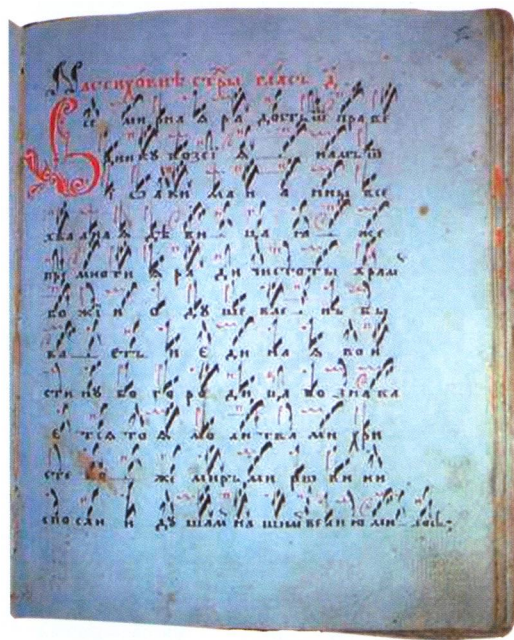 На стиховнѣ стры гласъ д҃
Все ми рна ѧ ра дость ѿ праве
дникꙋ ѧ намъ ѿ
їѡаки ма и а нны все
хвалнаѧ дѣ ви ца ꙗ же
многи ѧ ра ди чистоты храм
божїи о дꙋ шевле нъ бы
ва етъ и еди на ѧ вои
стинꙋ бо горо ди ца позна ва
е тсѧ тоѧ мо литва ми хри
сте бо же миръ ми
спосли и дꙋ шамъ на шим велию ми лость